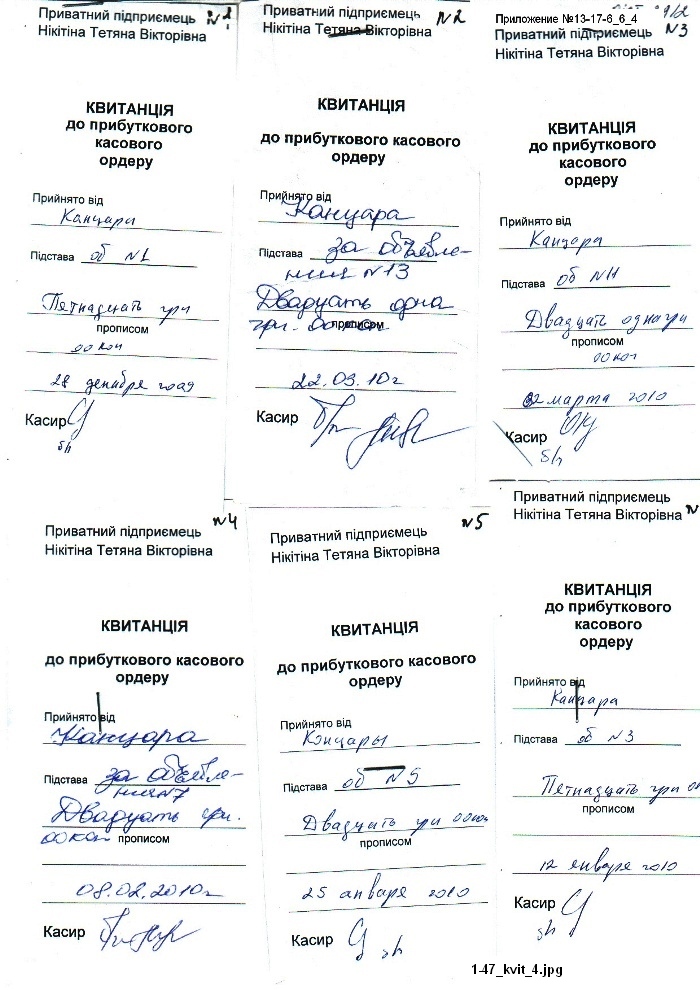 Приватний підприємець №1
Нікітіна Тетяна Вікторівна
КВИТАНЦІЯ
до прибуткового
касового
ордеру
Прийнято від
Канцары
Підстава об №1
Пятнадцать грн
прописом
00 коп
28 декабря 2009
Касир
Приватний підприємець №2
Нікітіна Тетяна Вікторівна
КВИТАНЦІЯ
до прибуткового касового
ордеру
Прийнято від
Канцара
Підстава за объявле-
ния №13
Двадцать одна
грн. 00 коп прописом
22.03.10г
Касир
Приложение №13-17-6_6_4
Приватний підприємець №3
Нікітіна Тетяна Вікторівна
КВИТАНЦІЯ
до прибуткового
касового
ордеру
Прийнято від
Канцары
Підстава об №11
Двадцать одна грн
прописом
00 коп
02 марта 2010
Касир
Приватний підприємець №4
Нікітіна Тетяна Вікторівна
КВИТАНЦІЯ
до прибуткового касового
ордеру
Прийнято від
Канцара
Підстава за объявле-
ния №7
Двадцать грн.
00 коп прописом
08.02.2010г
Касир
Приватний підприємець №5
Нікітіна Тетяна Вікторівна
КВИТАНЦІЯ
до прибуткового касового
ордеру
Прийнято від
Канцары
Підстава об №5
Двадцать грн 00 коп
прописом
25 января 2010
Касир
Приватний підприємець
Нікітіна Тетяна Вікторівна №
КВИТАНЦІЯ
до прибуткового
касового
ордеру
Прийнято від
Канцара
Підстава об №3
Пятнадцать грн
прописом
12 января 2010
Касир
1-47_kvit_4.jpg